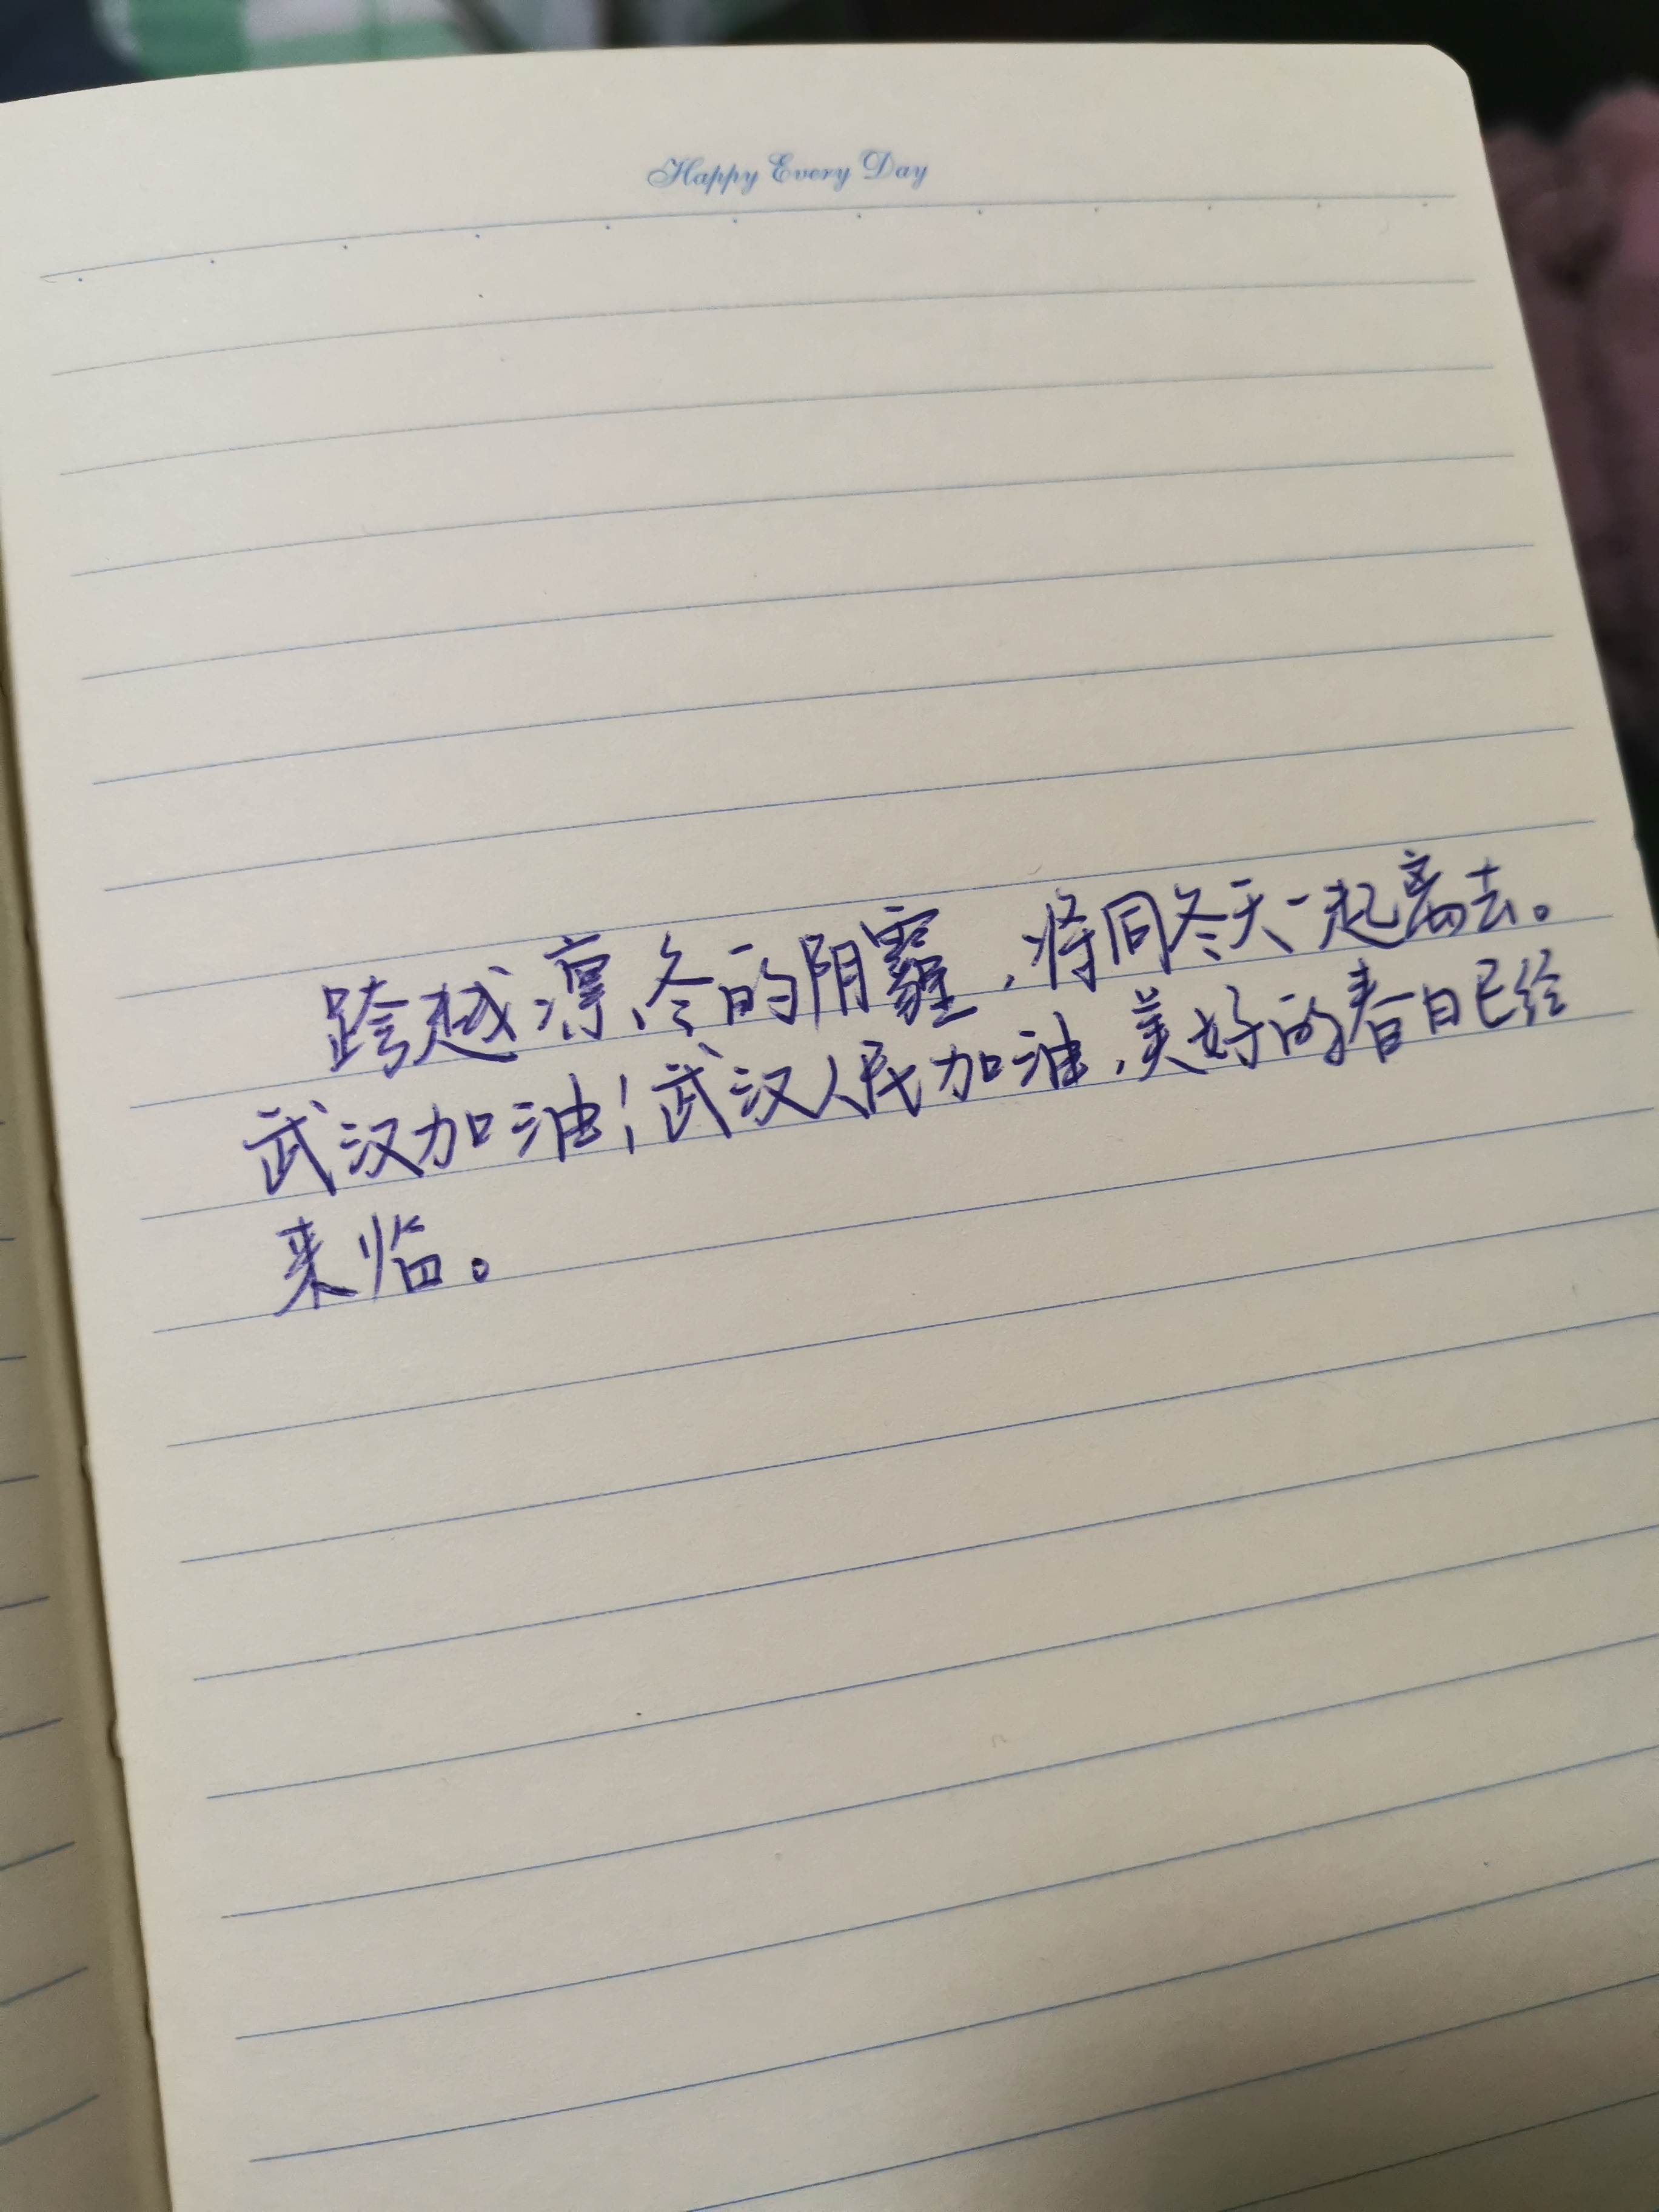 Happy Every Day
跨越凛冬的阴霾，将同冬天一起离去。
武汉加油！武汉人民加油，美好的春日已经
来临。